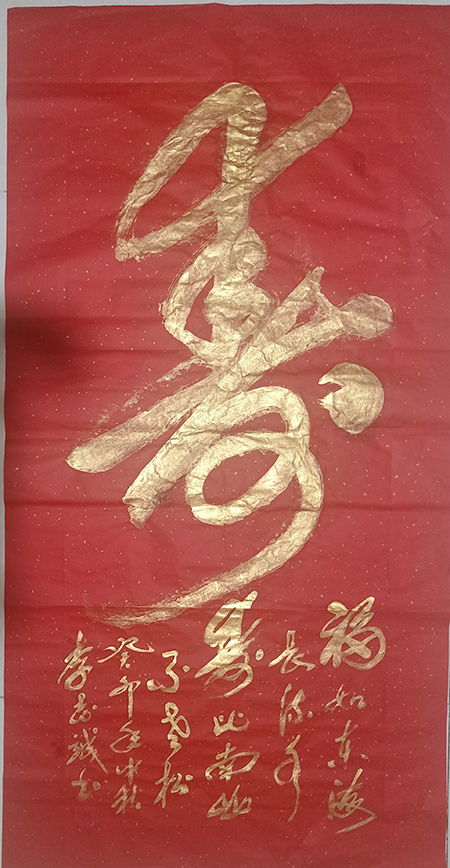 寿
福如东海
长流水
寿比南山
不老松
癸卯年中秋
李志斌书